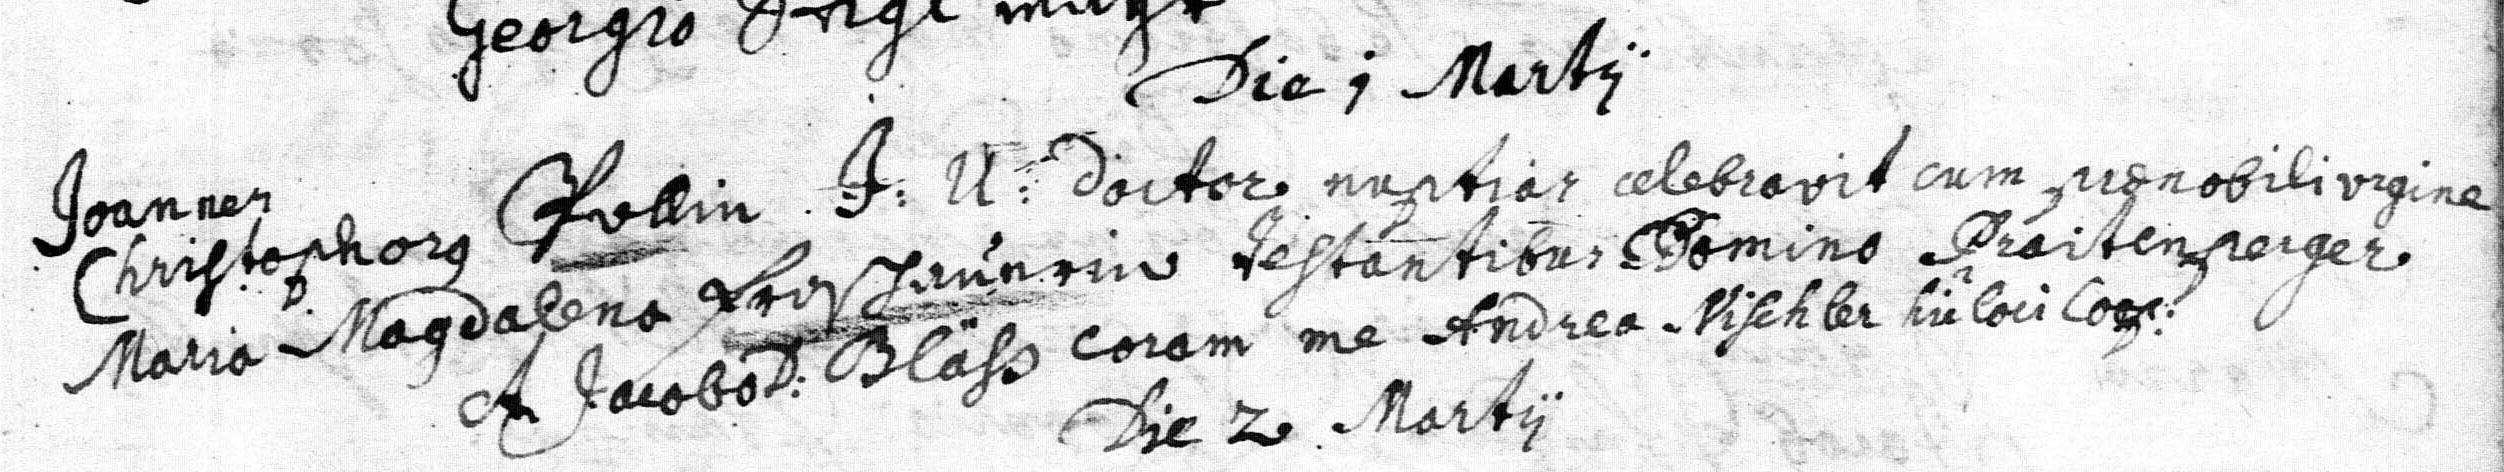 Georgio
Die 1 Martij
Joannes
Christophorg J: U: Doctor nuptias celebravit cum prænobili virgine
Maria Magdalena testantibus Domino Praitenperger
A Jacobo D: Bläss coram me Andrea Vischler hu loci Coop:
Die 2 Martij